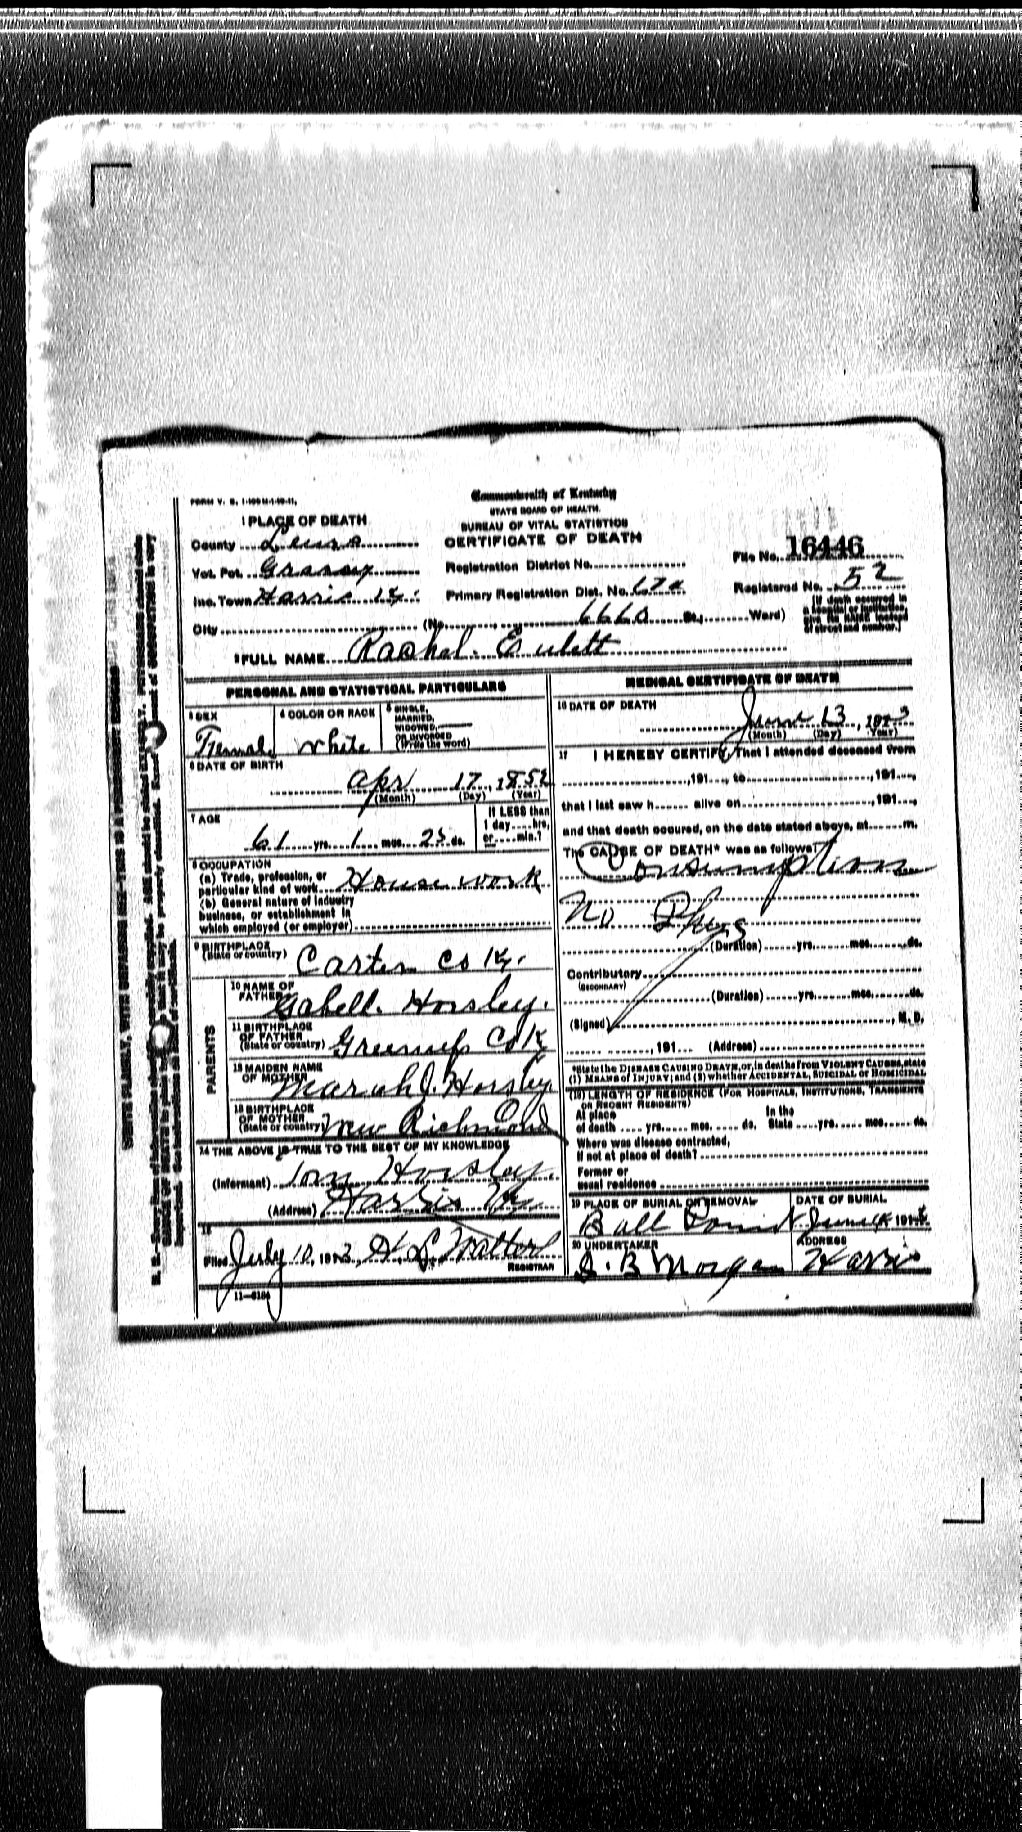 FORM V. S. 1-
Commonwealth of Kentucky
STATE BOARD OF HEALTH.
BUREAU OF VITAL STATISTICS
CERTIFICATE OF DEATH
1 PLACE OF DEATH
County Lewis
Vot. Pct. Grassy
Inc. Town Harris Ky.
City (No. 6660 St.; Ward)
Registration District No.
Primary Registration Dist. No. 67a
File No. 16446
Registered No. 52
[If death occurred in a hospital or institution, give its NAME instead of street and number.]
2 FULL NAME Rachel. Evulett
PERSONAL AND STATISTICAL PARTICULARS
3 SEX
Female
4 COLOR OR RACE
white
5 SINGLE, MARRIED, WIDOWED, OR DIVORCED (Write the word)
6 DATE OF BIRTH
Apr 17, 1852
(Month) (Day) (Year)
7 AGE
61 yrs. 1 mos. 25 ds.
If LESS than 1 day hrs. or min.?
8 OCCUPATION
(a) Trade, profession, or
particular kind of work House work
(b) General nature of industry
business, or establishment in
which employed (or employer)
9 BIRTHPLACE
(State or country) Carter Co Ky.
PARENTS
10 NAME OF
FATHER Gabell. Horsley.
11 BIRTHPLACE
OF FATHER
(State or country) Greenup Co K
12 MAIDEN NAME
OF MOTHER Mariah J. Horsley
13 BIRTHPLACE
OF MOTHER
(State or country) New Richmond
14 THE ABOVE IS TRUE TO THE BEST OF MY KNOWLEDGE
(Informant) Tom Horsley.
(Address) Harris Ky
15
Filed July 10, 1913, H L
REGISTRAR
11-3184
MEDICAL CERTIFICATE OF DEATH
16 DATE OF DEATH
June 13, 1913
(Month) (Day) (Year)
17 I HEREBY CERTIFY, That I attended deceased from
, 191 , to , 191 ,
that I last saw h alive on , 191 ,
and that death occured, on the date stated above, at m.
The CAUSE OF DEATH* was as follows:
Consumption
No Phys
(Duration) yrs. mos. ds.
Contributory
(SECONDARY)
(Duration) yrs. mos. ds.
(Signed) , M. D.
, 191 (Address)
*State the DISEASE CAUSING DEATH, or, in deaths from VIOLENT CAUSES, state
(1) MEANS of INJURY; and (2) whether ACCIDENTAL, SUICIDAL or HOMICIDAL
(18) LENGTH OF RESIDENCE (FOR HOSPITALS, INSTITUTIONS, TRANSIENTS
OR RECENT RESIDENTS)
At place of death yrs. mos. ds. In the State yrs. mos. ds.
Where was disease contracted,
if not at place of death?
Former or
usual residence
19 PLACE OF BURIAL OR REMOVAL
Ball Point
DATE OF BURIAL
June 191
20 UNDERTAKER
J. B Morgan
ADDRESS
Harris